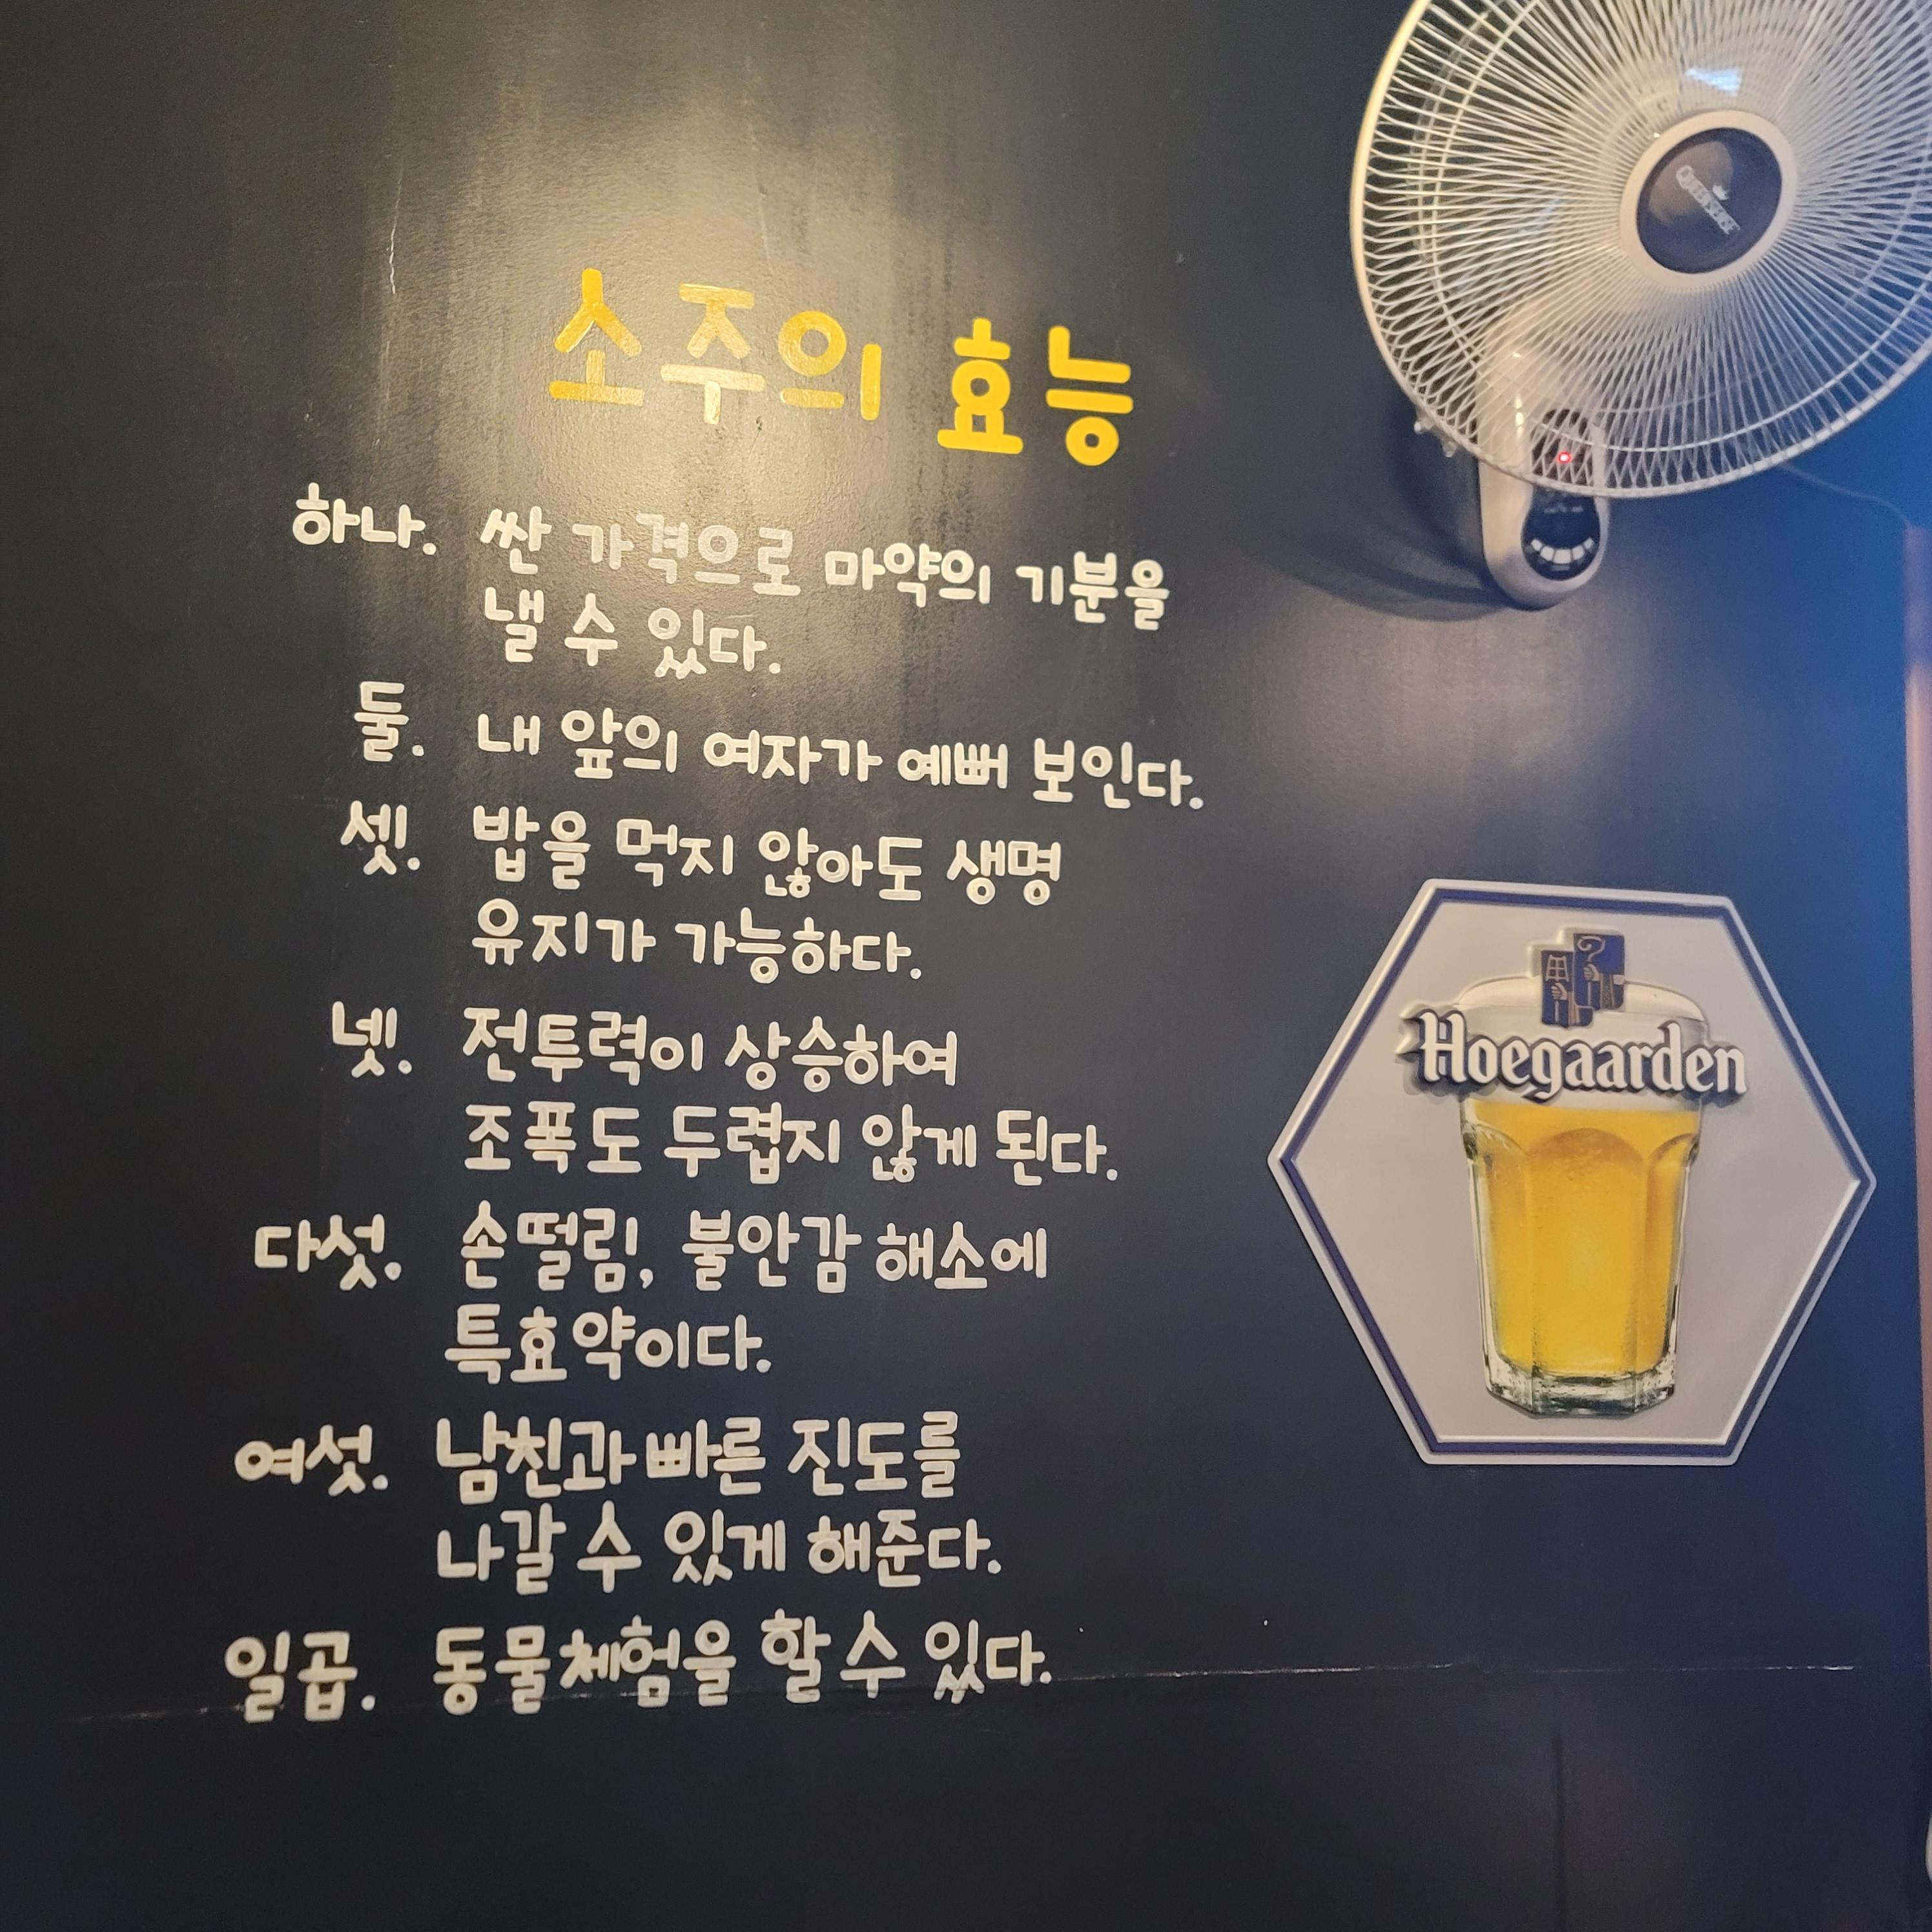 소주의 효능
하나. 싼 가격으로 마약의 기분을
낼 수 있다.
둘. 내 앞의 여자가 예뻐 보인다.
셋. 밥을 먹지 않아도 생명
유지가 가능하다.
넷. 전투력이 상승하여
조폭도 두렵지 않게 된다.
다섯. 손떨림, 불안감 해소에
특효약이다.
여섯. 남친과 빠른 진도를
나갈 수 있게 해준다.
일곱. 동물체험을 할 수 있다.
Hoegaarden